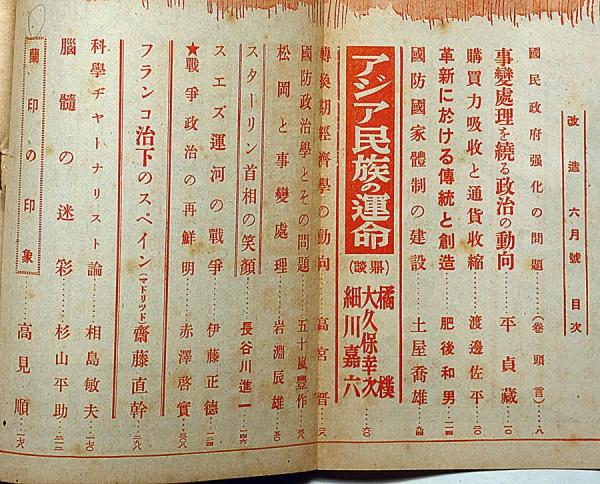 改造 六月號 目次
國民政府强化の問題……(卷頭言)…八
事變處理を繞る政治の動向……平貞藏…一〇
購買力吸收と通貨收縮……渡邊佐平…二〇
革新に於ける傳統と創造……肥後和男…二四
國防國家體制の建設……土屋喬雄…九四
アジア民族の運命(鼎談)
橘樸
大久保幸次
細川嘉六…六〇
轉換期經濟學の動向……高宮晋…三六
國防政治學とその問題……五十嵐豐作…八五
松岡と事變處理……岩淵辰雄…五〇
スターリン首相の笑顔……長谷川進一…二四六
スエズ運河の戰爭……伊藤正德…二四
★戰爭政治の再鮮明……赤澤啓實…三八
フランコ治下のスペイン(マドリッド)齋藤直幹…二九八
科學ヂヤトナリスト論……相島敏夫…一七〇
腦髓の迷彩……杉山平助…三一三
蘭印の印象……高見順…一七六